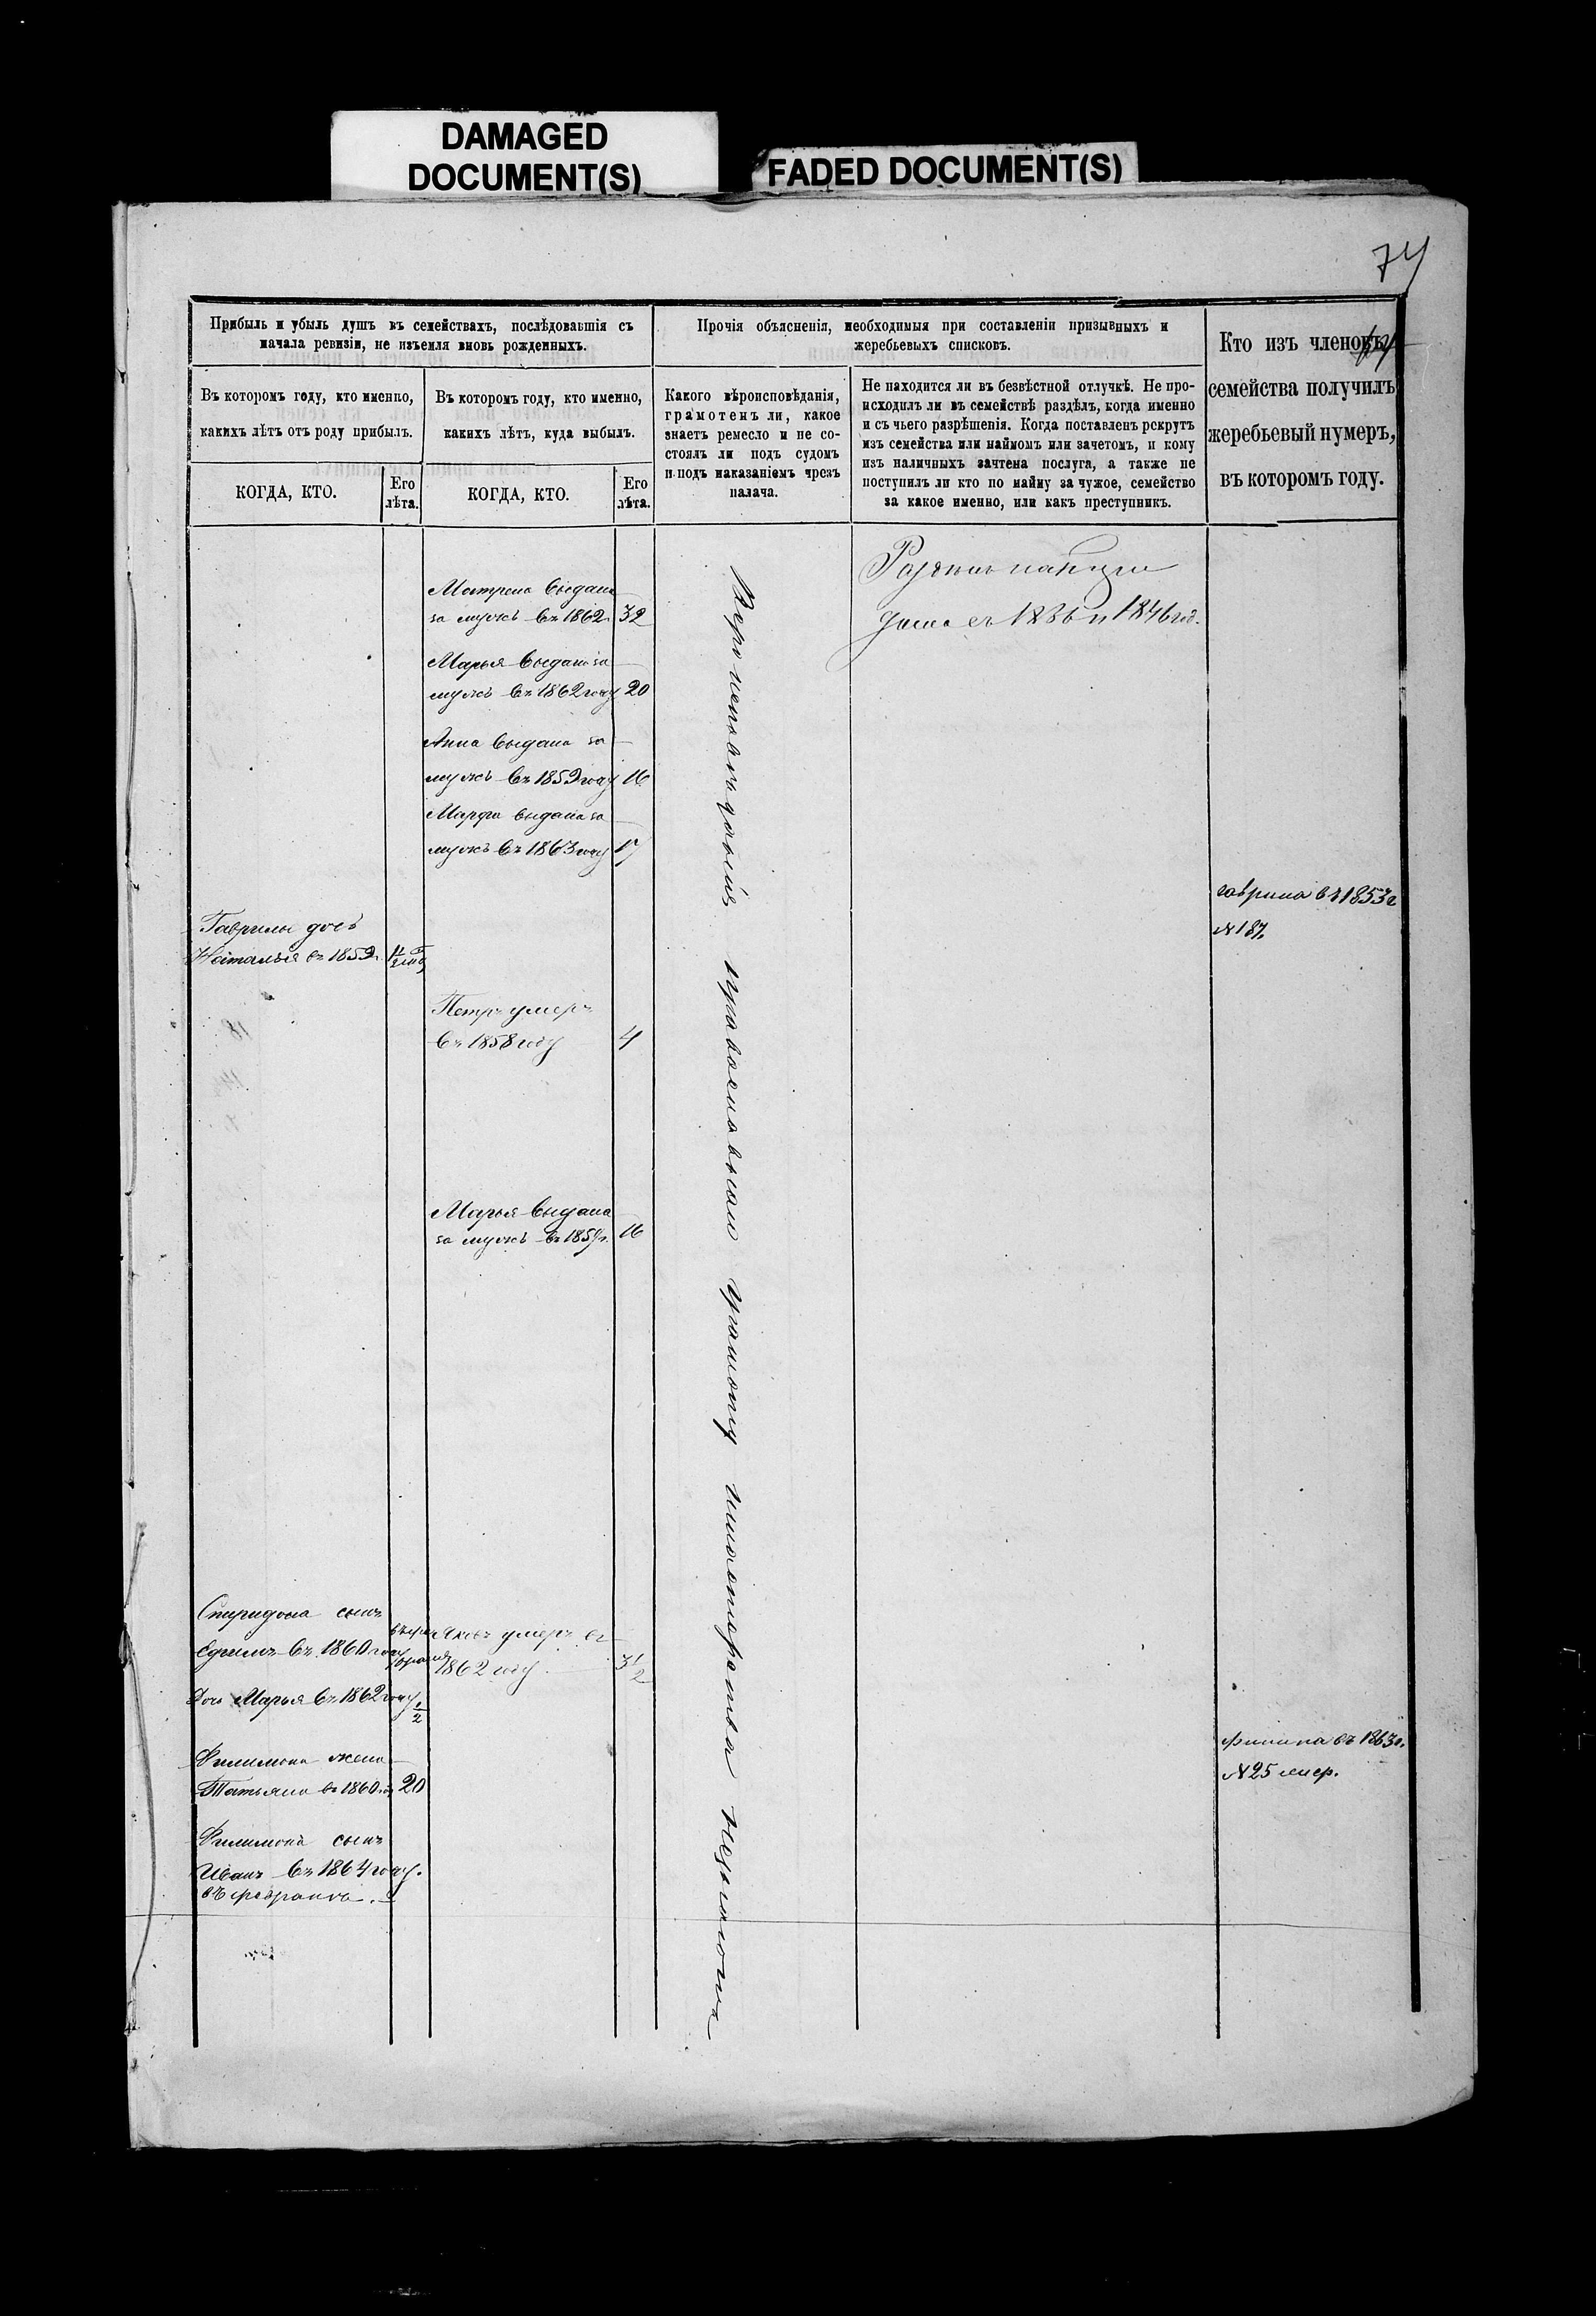 DAMAGED
DOCUMENT(S)
FADED DOCUMENT(S)
74
Прибыль и убыль душъ въ семействахъ, послѣдовавшія съ
начала ревизіи, не изъемля вновь рожденныхъ.
Въ которомъ году, кто именно,
какихъ лѣтъ отъ роду прибылъ.
Въ которомъ году, кто именно,
какихъ лѣтъ, куда выбылъ.
КОГДА, КТО.
Его
лѣта.
КОГДА, КТО.
Его
лѣта.
Прочія объясненія, необходимыя при составленіи призывныхъ и
жеребьевыхъ списковъ.
Какого вѣроисповѣданія,
грамотенъ ли, какое
знаетъ ремесло и не со-
стоялъ ли подъ судомъ
и подъ наказаніемъ чрезъ
палача.
Не находится ли въ безвѣстной отлучкѣ. Не про-
исходилъ ли въ семействѣ раздѣлъ, когда именно
и съ чьего разрѣшенія. Когда поставленъ рекрутъ
изъ семейства или наймомъ или зачетомъ, и кому
изъ наличныхъ зачтена послуга, а также не
поступилъ ли кто по найму за чужое, семейство
за какое именно, или какъ преступникъ.
Кто изъ членовъ
семейства получилъ
жеребьевый нумеръ,
въ которомъ году.
Матрена выдана
за мужъ въ 1862 г. 32
Марья выдана за
мужъ въ 1862 году 20
Анна выдана за
мужъ въ 1859 году 16
Марфа выдана за
мужъ въ 1863 году 17
Гаврилы дочь
Наталья въ 1859 г.
Петръ умеръ
въ 1858 году 4
Марья выдана
за мужъ въ 1857 г. 16
Спиридона сынъ
Ефимъ въ 1860 году
Дочь Марья въ 1862 году 1/2
Яковъ умеръ въ
1862 году 3 1/2
Филимона жена
Татьяна въ 1860 г. 20
Филимона сынъ
Иванъ въ 1864 году.
въ февралѣ.
Вероисповѣданія православнаго грамоту и мастерства незнаютъ
съ 1836 и 1846 год.
гаврила въ 1853 г
№ 187.
филипа въ 1863 г.
№ 25